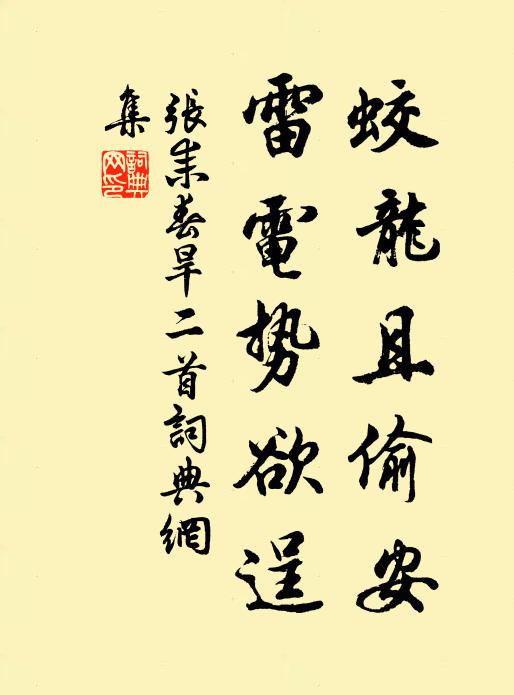 蛟龍且偷安
雷電势欲逞
張耒春旱二首詞典網
集
詞典
网印